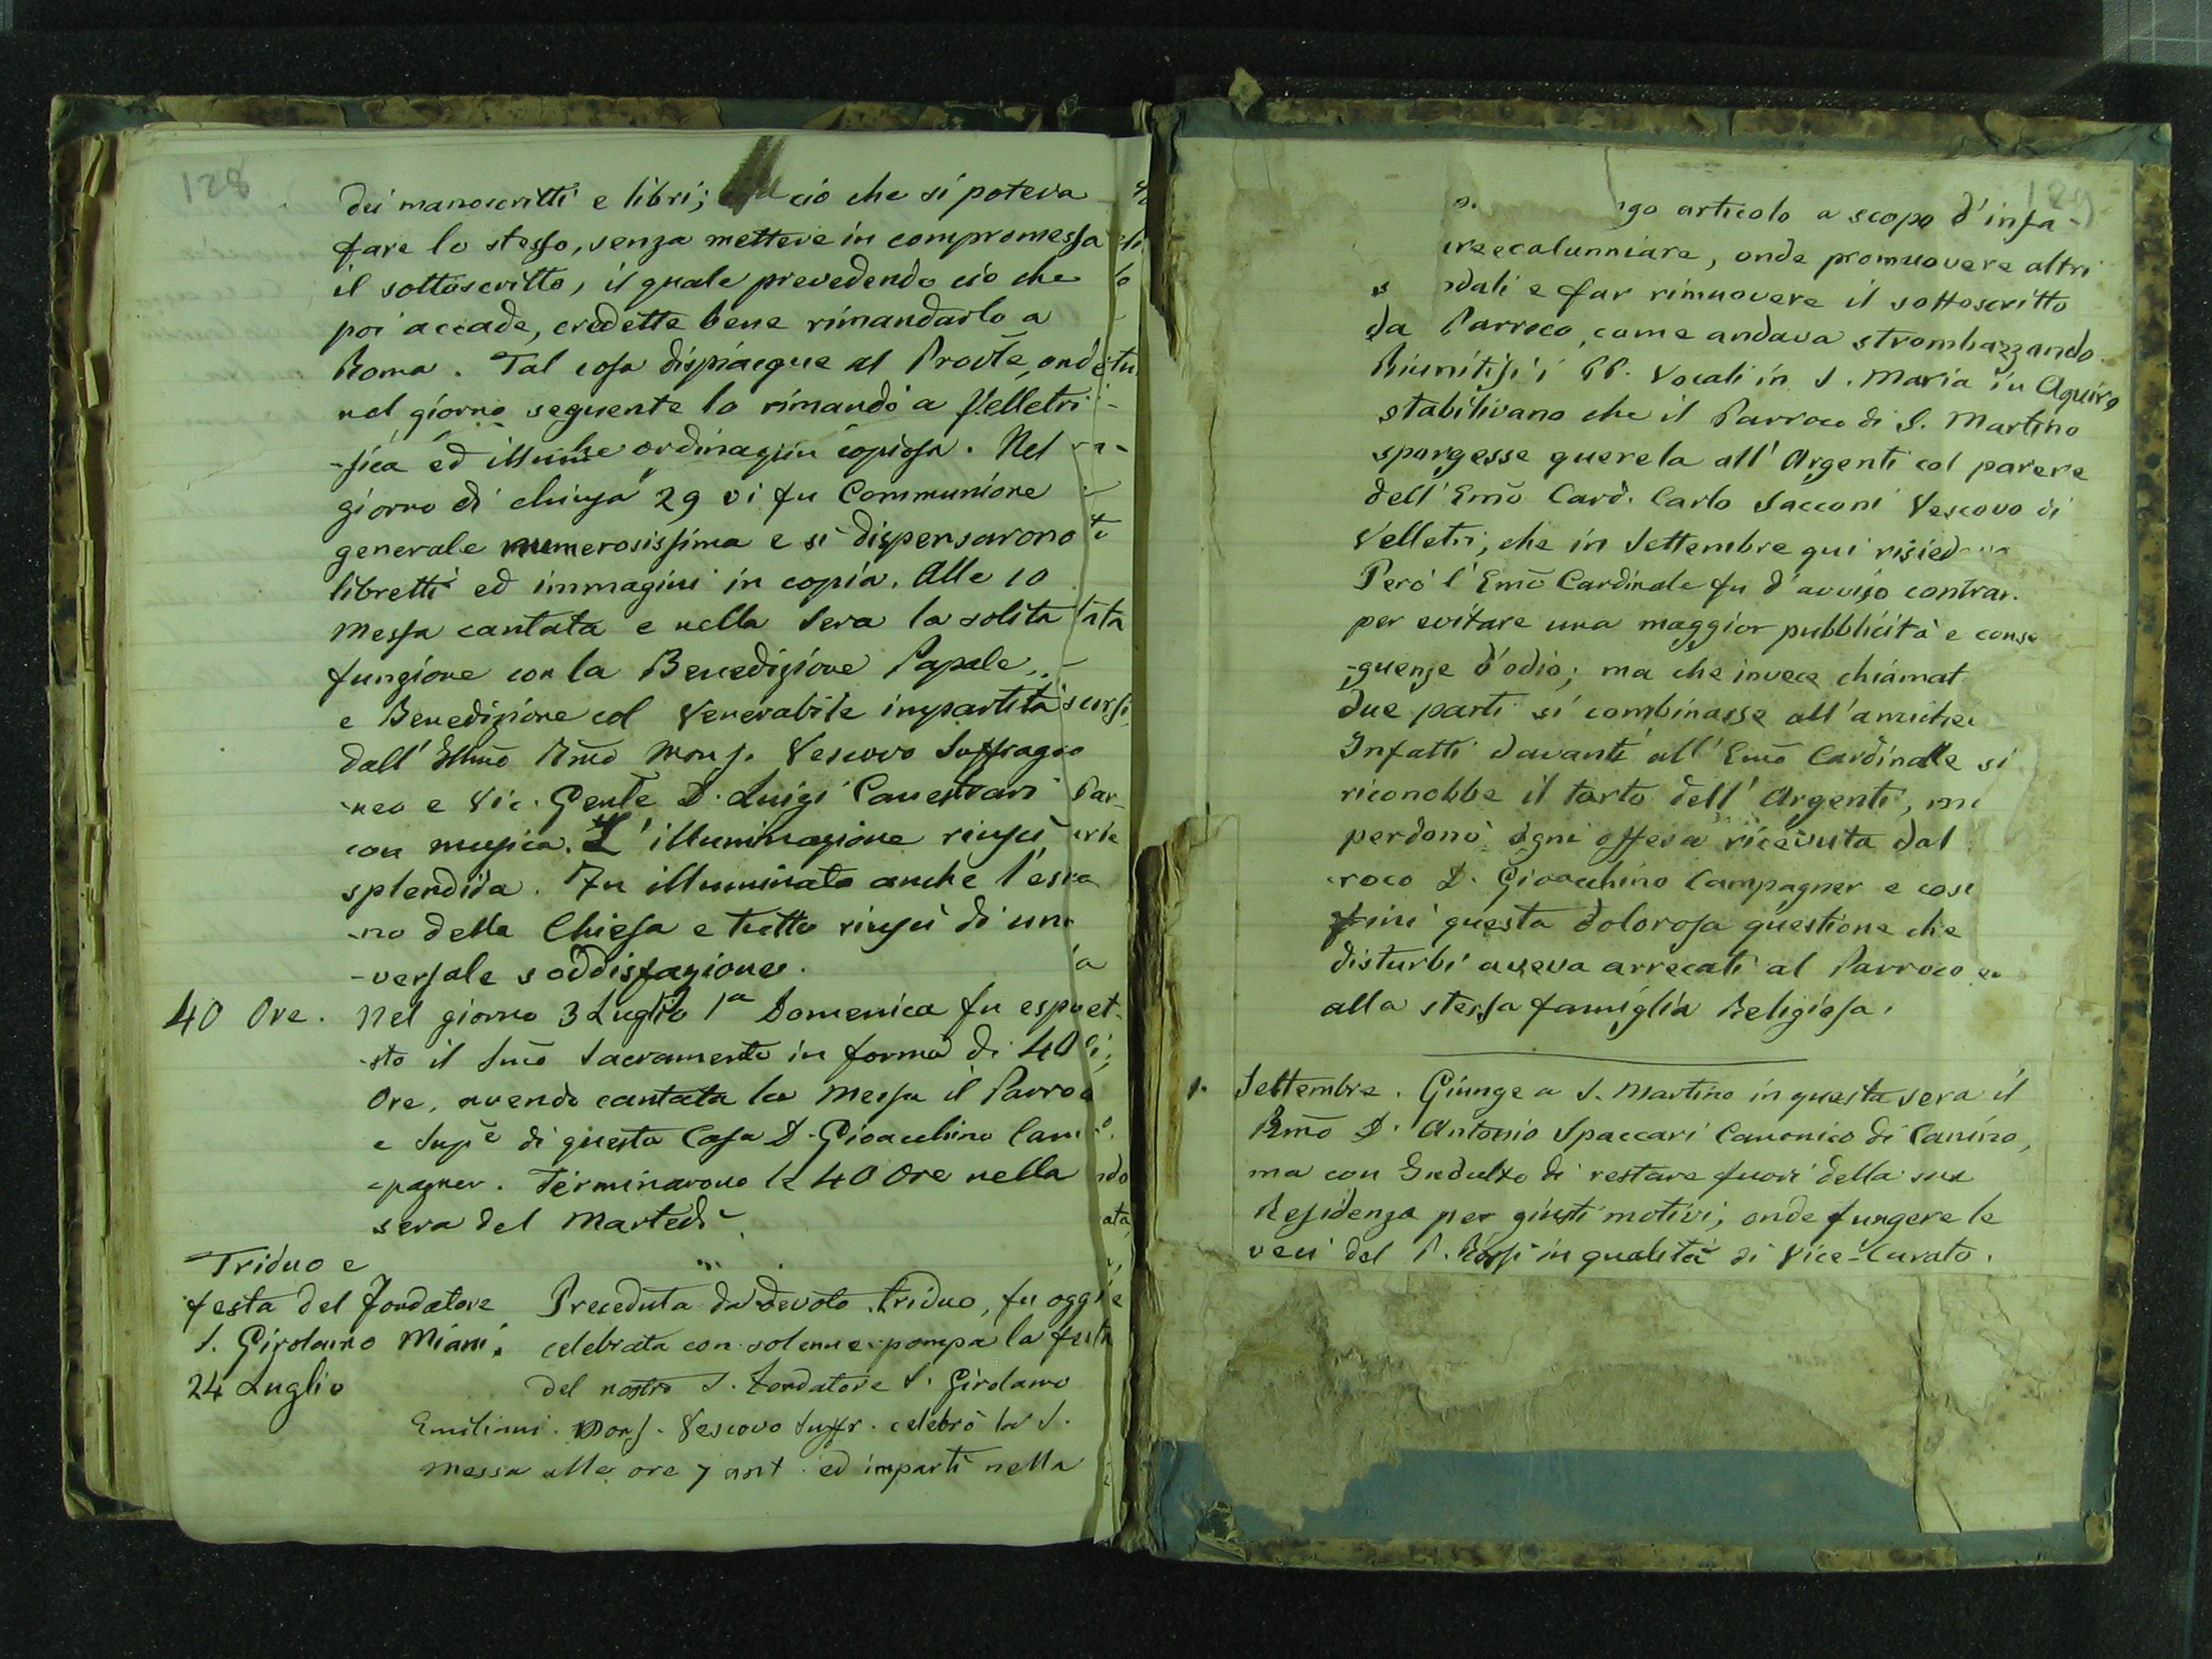 128
dei manoscritti e libri; ciò che si poteva
fare lo stesso, senza mettere in compromessa
il sottoscritto, il quale prevedendo ciò che
poi accade, credette bene rimandarlo a
Roma. Tal cosa dispiacque al Provle, onde
nel giorno seguente lo rimandò a Velletri
-sica ed illumine copiosa. Nel
giorno di chiusa 29 vi fu Communione
generale numerosissima e si dispensarono
libretti ed immagini in copia. Alle 10
Messa cantata e nella sera la solita
funzione con la Benedizione Papale
e Benedizione col Venerabile impartita
dall' Illmo Rmo Mons. Vescovo Suffraga
-neo e Vic. Genle D. Luigi Canestrari
con musica. L'illuminazione riuscì
splendida. Fu illuminato anche l'ester
-no della Chiesa e tutto riuscì di uni
-versale soddisfazione.
40 Ore. Nel giorno 3 Luglio 1a Domenica fu espo
-sto il Smo Sacramento in forma di 40
Ore, avendo cantata la Messa il Parroco
e Supe di questa Casa D. Gioacchino Cam
-pagner. Terminarono le 40 Ore nella
sera del Martedì.
Triduo e
festa del Fondatore
S. Girolamo Miani.
24 Luglio
Preceduta da devoto triduo, fu oggi
celebrata con solenne pompa la festa
del nostro S. Fondatore S. Girolamo
Emiliani. Mons. Vescovo Suffr. celebrò la S.
Messa alle ore 7 ant. ed impartì nella
129
articolo a scopo d'infa-
e calunniare, onde promuovere altri
s dali e far rimuovere il sottoscritto
da Parroco, come andava strombazzando.
Riunitisi i PP. Vocali in S. Maria in Aquiro
stabilivano che il Parroco di S. Martino
spargesse querela all' Argenti col parere
dell' Emo Card. Carlo Sacconi Vescovo di
Velletri, che in Settembre qui risied
Però l'Emo Cardinale fu d'avviso contrar
per evitare una maggior pubblicità e conse
-guenze d'odio; ma che invece chiamat
due parti si combinasse all'amichev
Infatti davanti all' Emo Cardinale si
riconobbe il torto dell' Argenti, mi
perdonò ogni offesa ricevuta dal
-roco D. Gioacchino Campagner e così
finì questa dolorosa questione che
disturbi aveva arrecati al Parroco
alla stessa famiglia Religiosa.
1. Settembre. Giunge a S. Martino in questa sera il
Rmo D. Antonio Spaccari Canonico di Canino,
ma con Indulto di restare fuori della sua
Residenza per giusti motivi, onde fungere le
veci del P. Rossi in qualità di Vice-Curato.